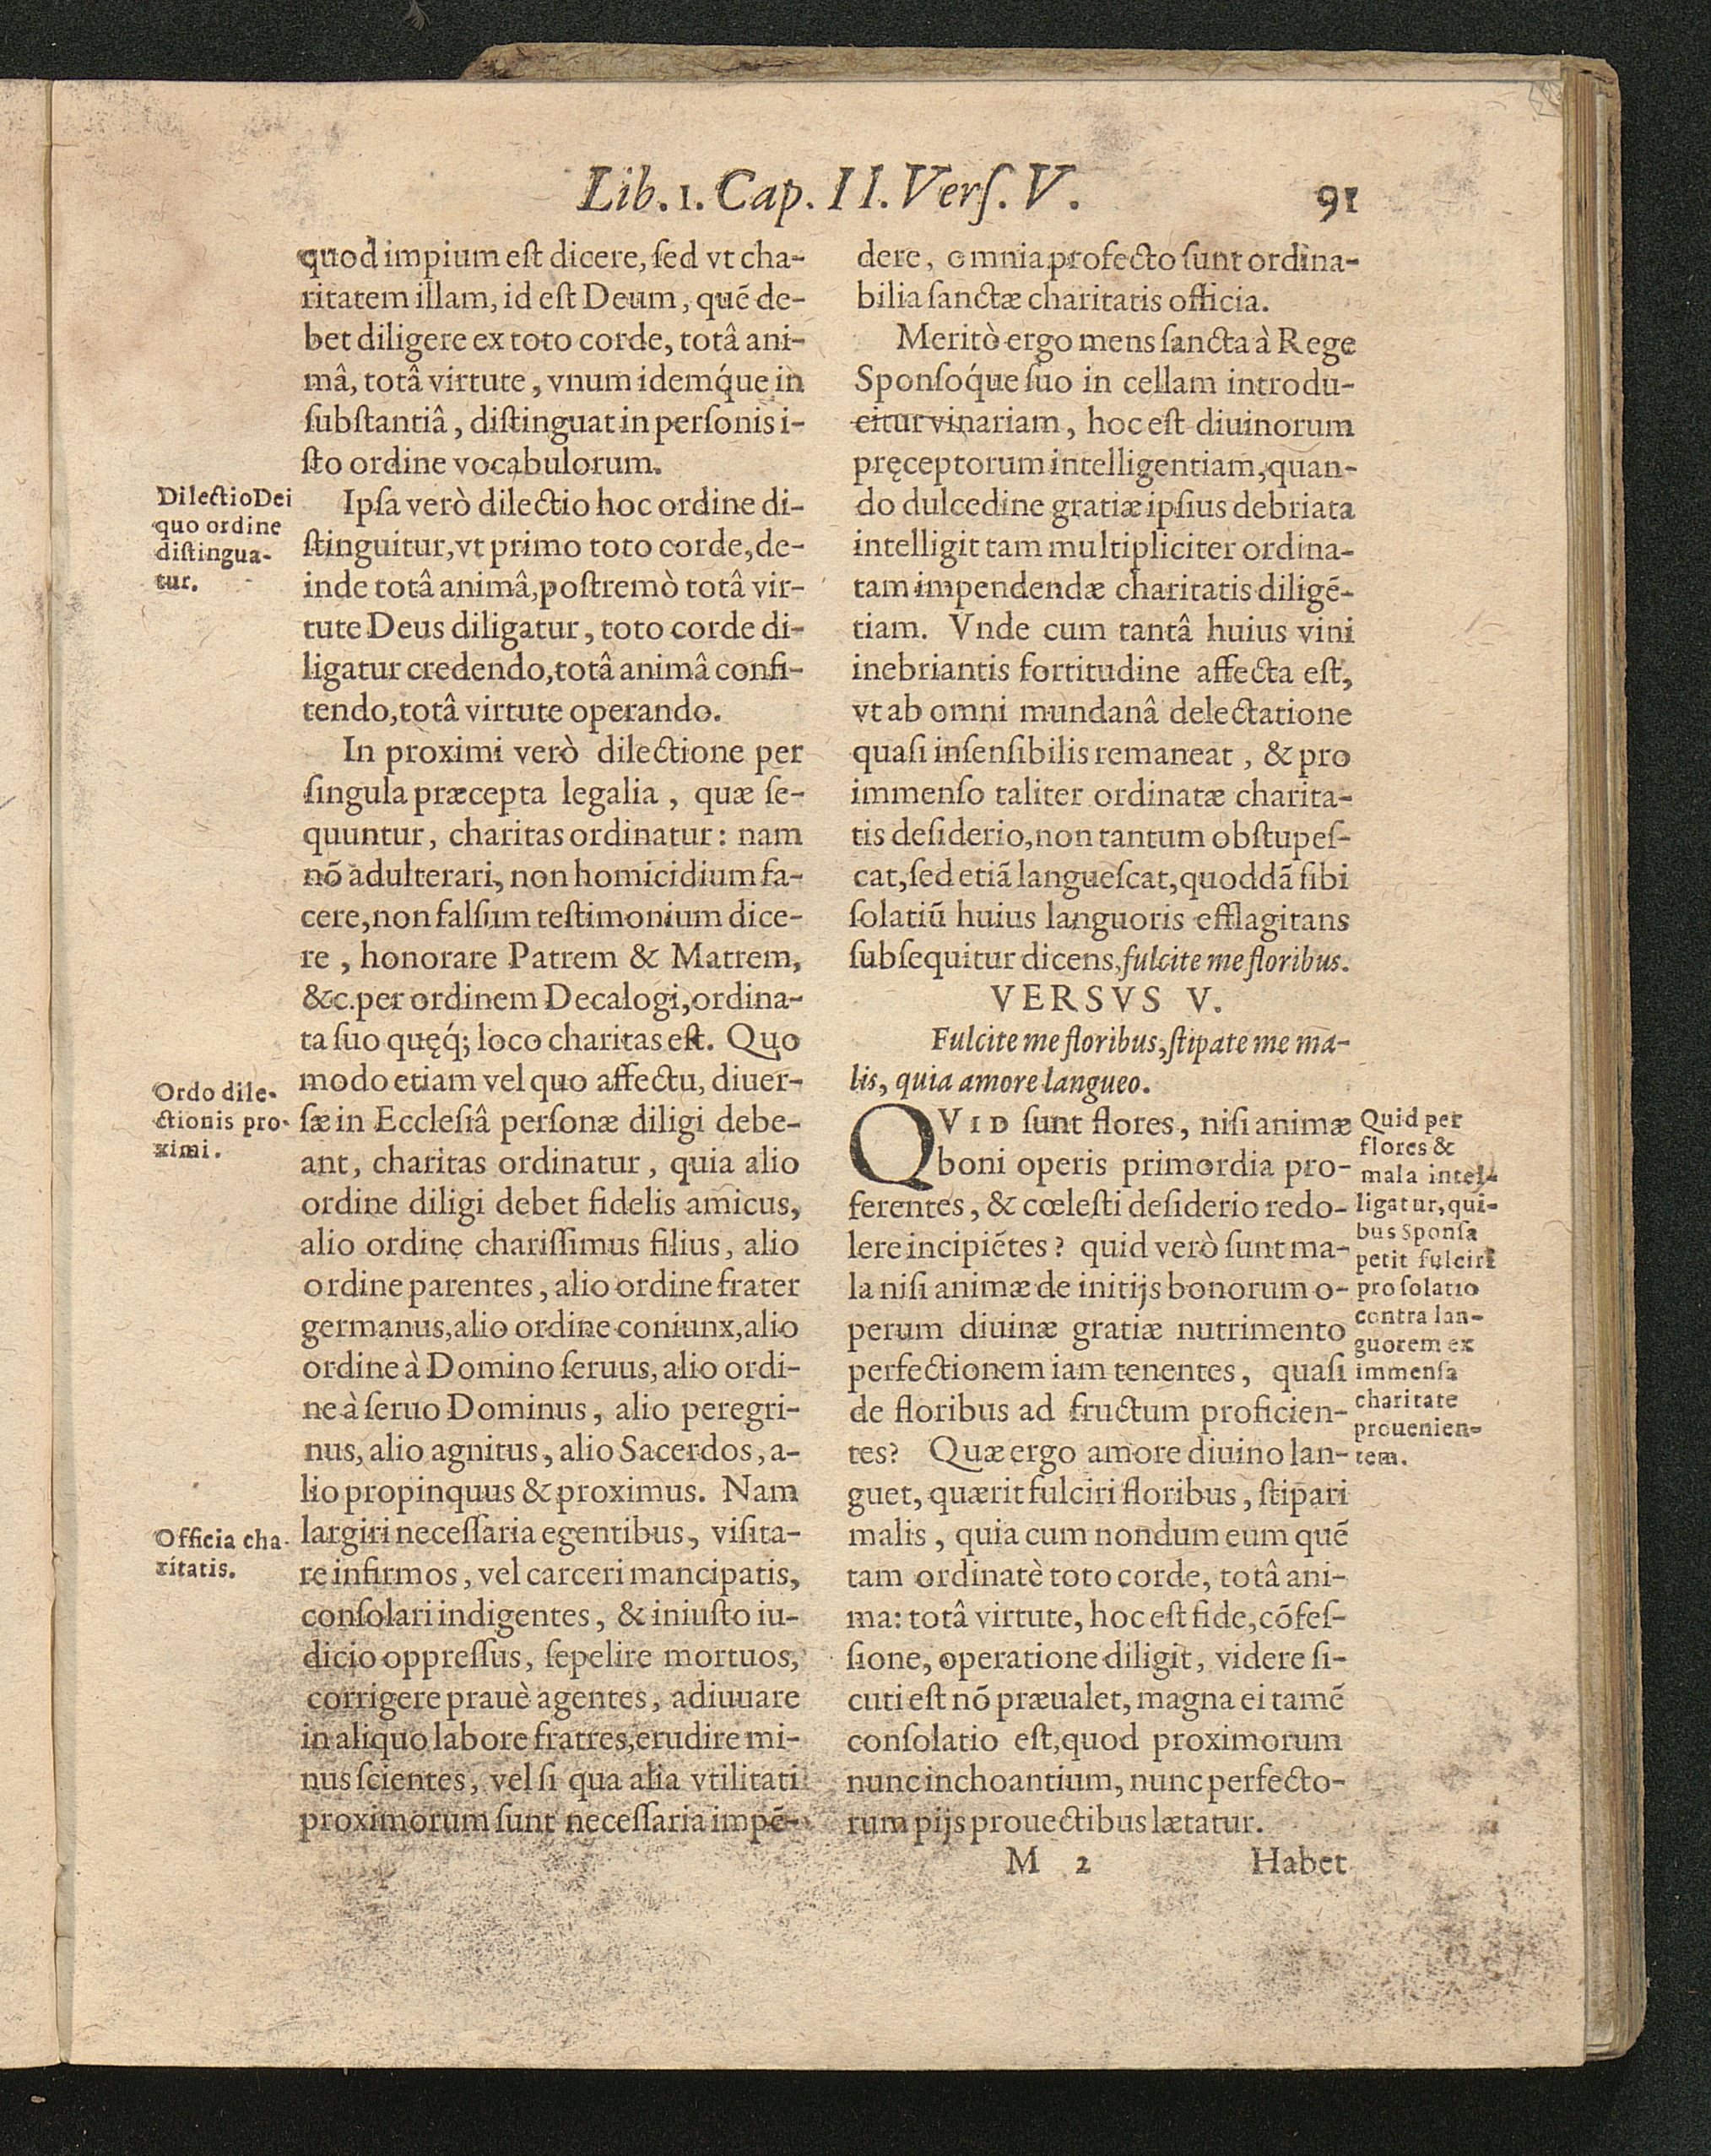 Lib. I. Cap. II. Verſ. V.
91
quod impium eſt dicere, ſed vt cha-
ritatem illam, id eſt Deum, quẽ de-
bet diligere ex toto corde, totâ ani-
mâ, totâ virtute, vnum idemq́ue in
ſubſtantiâ, diſtinguat in perſonis i-
ſto ordine vocabulorum.
Dilectio Dei
quo ordine
diſtingua-
tur.
Ipſa verò dilectio hoc ordine di-
ſtinguitur, vt primo toto corde, de-
inde totâ animâ, poſtremò totâ vir-
tute Deus diligatur, toto corde di-
ligatur credendo, totâ animâ confi-
tendo, totâ virtute operando.
In proximi verò dilectione per
ſingula præcepta legalia, quæ ſe-
quuntur, charitas ordinatur: nam
nõ adulterari, non homicidium fa-
cere, non falſum teſtimonium dice-
re, honorare Patrem & Matrem,
&c. per ordinem Decalogi, ordina-
ta ſuo quęq́; loco charitas eſt. Quo
Ordo dile-
ctionis pro-
ximi.
modo etiam vel quo affectu, diuer-
ſæ in Eccleſiâ perſonæ diligi debe-
ant, charitas ordinatur, quia alio
ordine diligi debet fidelis amicus,
alio ordine chariſſimus filius, alio
ordine parentes, alio ordine frater
germanus, alio ordine coniunx, alio
ordine à Domino ſeruus, alio ordi-
ne à ſeruo Dominus, alio peregri-
nus, alio agnitus, alio Sacerdos, a-
lio propinquus & proximus. Nam
Officia cha-
ritatis.
largiri neceſſaria egentibus, viſita-
re infirmos, vel carceri mancipatis,
conſolari indigentes, & iniuſto iu-
dicio oppreſſus, ſepelire mortuos,
corrigere prauè agentes, adiuuare
in aliquo labore fratres, erudire mi-
nus ſcientes, vel ſi qua alia vtilitati
proximorum ſunt neceſſaria impẽ-
dere, omnia profecto ſunt ordina-
bilia ſanctæ charitatis officia.
Meritò ergo mens ſancta à Rege
Sponſoq́ue ſuo in cellam introdu-
citur vinariam, hoc eſt diuinorum
pręceptorum intelligentiam, quan-
do dulcedine gratiæ ipſius debriata
intelligit tam multipliciter ordina-
tam impendendæ charitatis diligẽ-
tiam. Vnde cum tantâ huius vini
inebriantis fortitudine affecta eſt,
vt ab omni mundanâ delectatione
quaſi inſenſibilis remaneat, & pro
immenſo taliter ordinatæ charita-
tis deſiderio, non tantum obſtupeſ-
cat, ſed etiã langueſcat, quoddã ſibi
ſolatiũ huius languoris efflagitans
ſubſequitur dicens, fulcite me floribus.
VERSVS V.
Fulcite me floribus, ſtipate me ma-
lis, quia amore langueo.
QVID ſunt flores, niſi animæ
boni operis primordia pro-
ferentes, & cœleſti deſiderio redo-
lere incipiẽtes? quid verò ſunt ma-
la niſi animæ de initijs bonorum o-
perum diuinæ gratiæ nutrimento
perfectionem iam tenentes, quaſi
de floribus ad fructum proficien-
tes? Quæ ergo amore diuino lan-
guet, quærit fulciri floribus, ſtipari
malis, quia cum nondum eum quẽ
tam ordinatè toto corde, totâ ani-
ma: totâ virtute, hoc eſt fide, cõfeſ-
ſione, operatione diligit, videre ſi-
cuti eſt nõ præualet, magna ei tamẽ
conſolatio eſt, quod proximorum
nunc inchoantium, nunc perfecto-
rum pijs prouectibus lætatur.
Quid per
flores &
mala intel-
ligatur, qui-
bus Sponſa
petit fulciri
pro ſolatio
contra lan-
guorem ex
immenſa
charitate
prouenien-
tem.
M 2
Habet